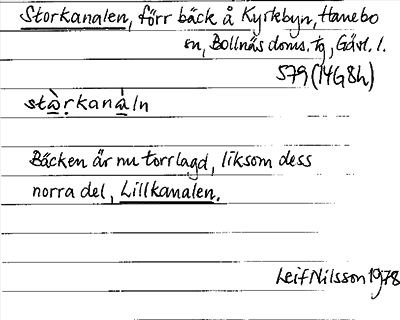 Storkanalen, förr bäck å Kyrkbyn, Hanebo
sn, Bollnäs doms. tg, Gävl. l.
579 (14G8h)
stàrkanàln
Bäcken är nu torrlagd, liksom dess
norra del, Lillkanalen.
Leif Nilsson 1978